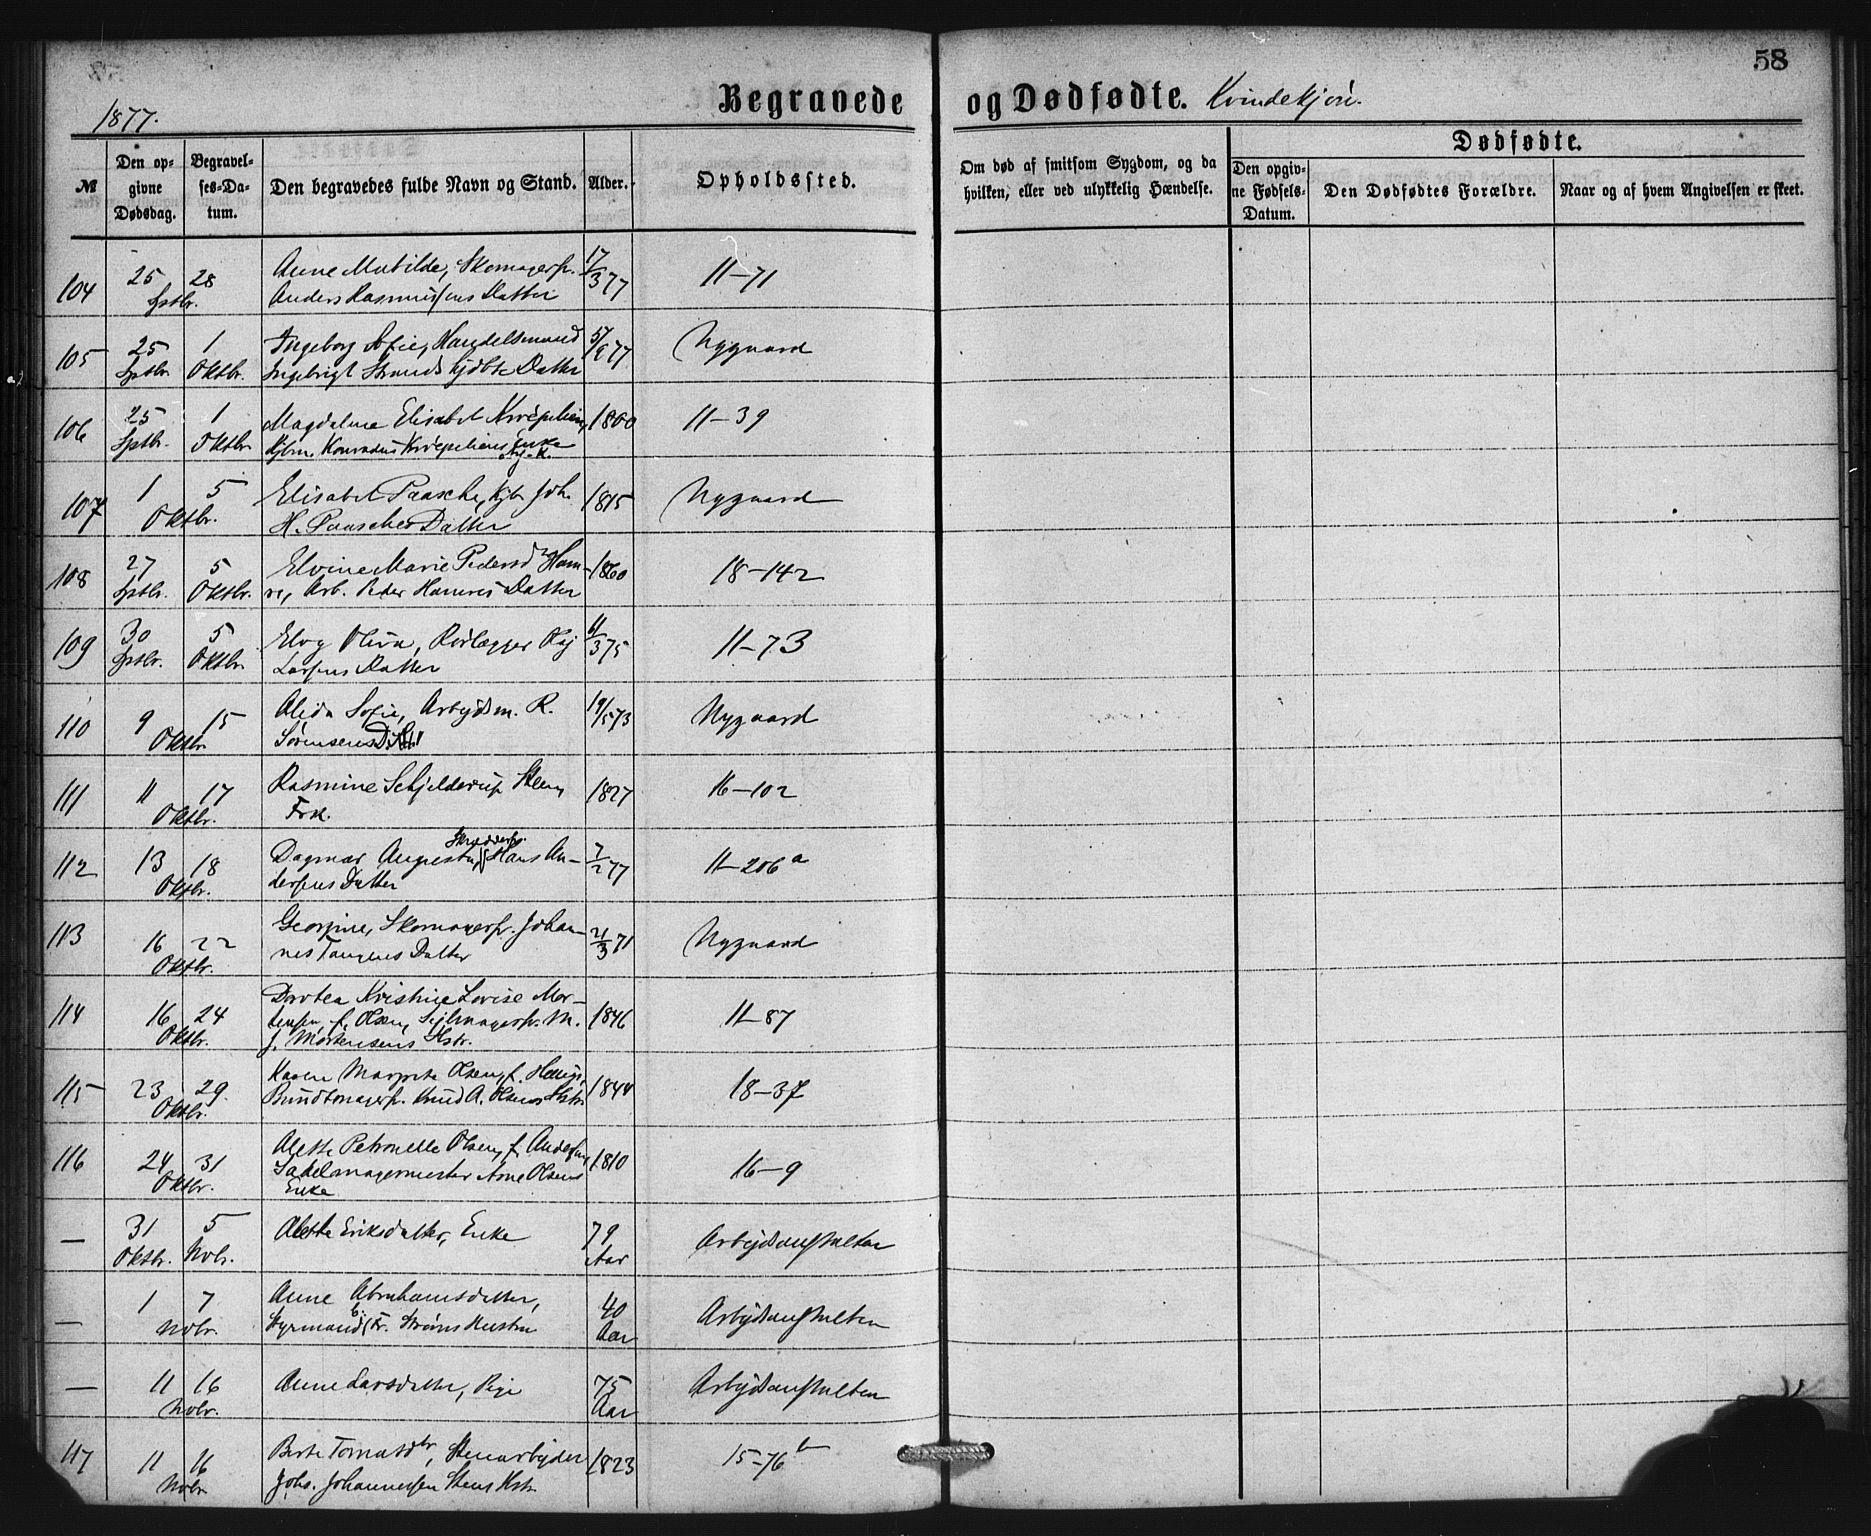 58
1877.
Begravede og Dødfødte. Kvindekjøn.
№
Den opgivne Dødsdag.
Begravelses-Datum.
Den begravedes fulde Navn og Stand.
Alder.
Opholdssted.
Om død af smitsom Sygdom, og da hvilken, eller ved ulykkelig Hændelse.
Dødfødte.
Den opgivne Fødsels-Datum.
Den Dødfødtes Forældre.
Naar og af hvem Angivelsen er skeet.
104 25 28 Sptbr. Anne Matilde, Skomagersv. 17/3 77 11-71
Anders Rasmussens Datter
105 25 Sptbr. 1 Oktbr. Ingeborg Sofie, Handelsmand 77 Nygaard
Ingebrigt Datter
106 25 Sptbr. 1 Oktbr. Magdalene Elisabet 1800 11-39
Konradus Enke
107 1 5 Oktbr. Elisabet Paasche, Kjbm Joh. 1815 Nygaard
H. Paasches Datter
108 27 Sptbr. 5 Oktbr. Elvine Marie Pedersd Ham- 1860 18-142
re, Arb. Peder Hamres Datter
109 30 Sptbr. 5 Oktbr. Oliva, Rørlægger 11/3 75 11-73
Larsens Datter
110 9 15 Oktbr. Alida Sofie, Arbeidsm. R. 19/5 73 Nygaard
Sørensens Dattr
111 11 17 Oktbr. Rasmine Schjelderup Steen, 1827 16-102
Frk.
112 13 18 Oktbr. Dagmar Augusta, Skrædersv. Hans An- 7/2 77 11-206 a
dersens Datter
113 16 22 Oktbr. Georgine, Skomagersv. Johan- 21/3 71 Nygaard
nes Tangens Datter
114 16 24 Oktbr. Dortea Kristine Lovise Mor- 1846 11-87
tensen, f. Olsen, Seilmagersv. M.
J. Mortensens Hstr.
115 23 29 Oktbr. Karen Margrete Olsen, f. 1844 18-37
Bundtmagersv. Knud A. Olsens Hstr
116 24 31 Oktbr. Alette Petronelle Olsen, f. Andersen, 1810 16-9
Sadelmagermester Arne Olsens
Enke
— 31 Oktbr. 5 Nvbr. Alette Eriksdatter, Enke 79 Aar Arbeidsanstalten
— 1 7 Nvbr. Anne Abrahamsdatter, 40 Aar Arbeidsanstalten
Styrmand Fr. Strøms Hustru
— 11 16 Nvbr. Anne Larsdatter, Pige 75 Aar Arbeidsanstalten
117 11 16 Nvbr Berte Tomasdtr, Stenarbeider 1823 15-76 b
Johs. Johannessen Stens Hstr